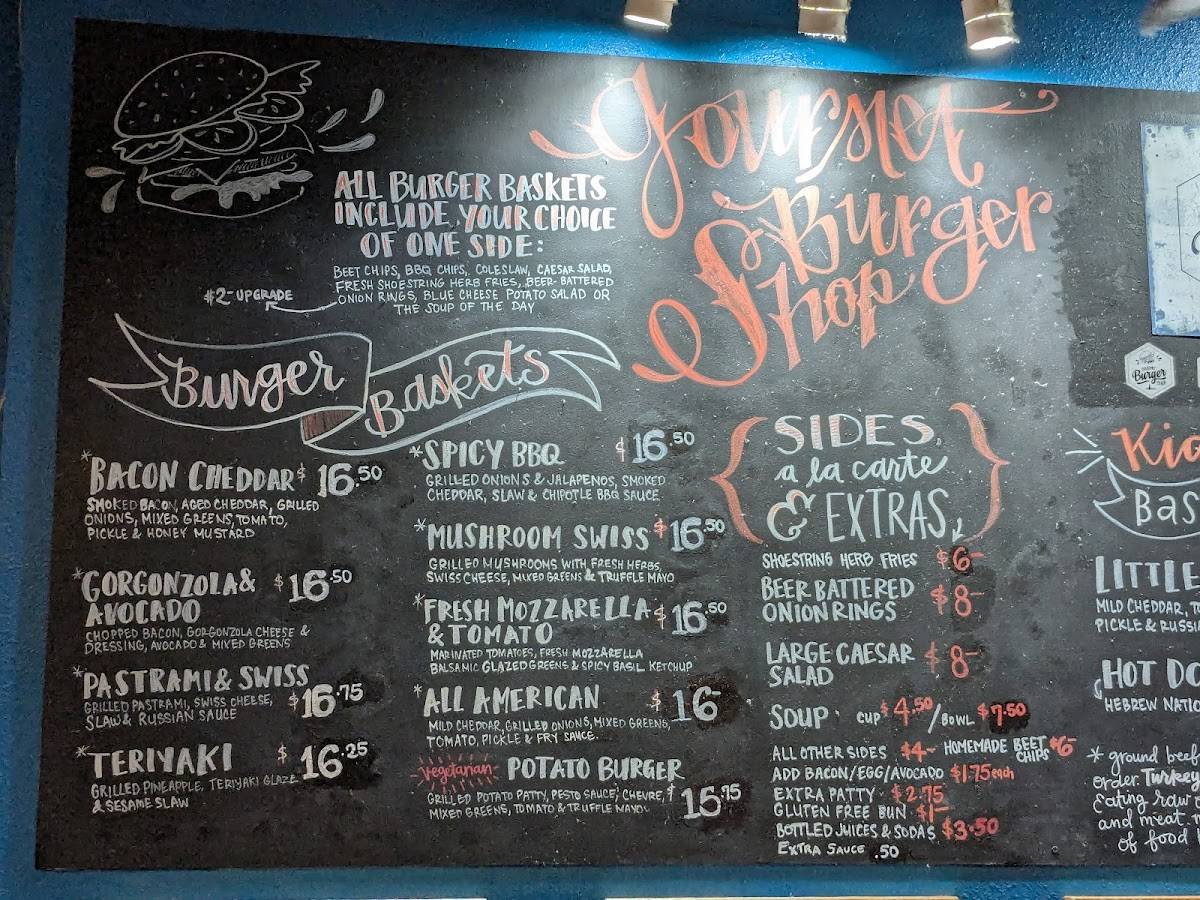 Gourmet
Burger
Shop
ALL BURGER BASKETS
INCLUDE YOUR CHOICE
OF ONE SIDE:
BEET CHIPS, BBQ CHIPS, COLESLAW, CAESAR SALAD,
FRESH SHOESTRING HERB FRIES, BEER-BATTERED
ONION RINGS, BLUE CHEESE POTATO SALAD OR
THE SOUP OF THE DAY
$2- UPGRADE
Burger Baskets
*BACON CHEDDAR $16.50
SMOKED BACON, AGED CHEDDAR, GRILLED
ONIONS, MIXED GREENS, TOMATO,
PICKLE & HONEY MUSTARD
*GORGONZOLA &
AVOCADO $16.50
CHOPPED BACON, GORGONZOLA CHEESE &
DRESSING, AVOCADO & MIXED GREENS
*PASTRAMI & SWISS
GRILLED PASTRAMI, SWISS CHEESE, $16.75
SLAW & RUSSIAN SAUCE
*TERIYAKI $16.25
GRILLED PINEAPPLE, TERIYAKI GLAZE
& SESAME SLAW
*SPICY BBQ $16.50
GRILLED ONIONS & JALAPENOS, SMOKED
CHEDDAR, SLAW & CHIPOTLE BBQ SAUCE
*MUSHROOM SWISS $16.50
GRILLED MUSHROOMS WITH FRESH HERBS,
SWISS CHEESE, MIXED GREENS & TRUFFLE MAYO
*FRESH MOZZARELLA
& TOMATO $16.50
MARINATED TOMATOES, FRESH MOZZARELLA
BALSAMIC GLAZED GREENS & SPICY BASIL KETCHUP
*ALL AMERICAN $16-
MILD CHEDDAR, GRILLED ONIONS, MIXED GREENS,
TOMATO, PICKLE & FRY SAUCE.
Vegetarian POTATO BURGER
GRILLED POTATO PATTY, PESTO SAUCE, CHEVRE, $15.75
MIXED GREENS, TOMATO & TRUFFLE MAYO.
SIDES,
a la carte
& EXTRAS
SHOESTRING HERB FRIES $6-
BEER BATTERED
ONION RINGS $8-
LARGE CAESAR
SALAD $8-
SOUP CUP $4.50 / BOWL $7.50
ALL OTHER SIDES $4- HOMEMADE BEET CHIPS $6-
ADD BACON/EGG/AVOCADO $1.75 each
EXTRA PATTY $2.75
GLUTEN FREE BUN $1-
BOTTLED JUICES & SODAS $3.50
EXTRA SAUCE .50
Burger
Bas
LITTLE
MILD CHEDDAR, T
PICKLE & RUSSIA
HOT DO
HEBREW NATIO
* ground beef
order. Turkey
Eating raw
and meat m
of food